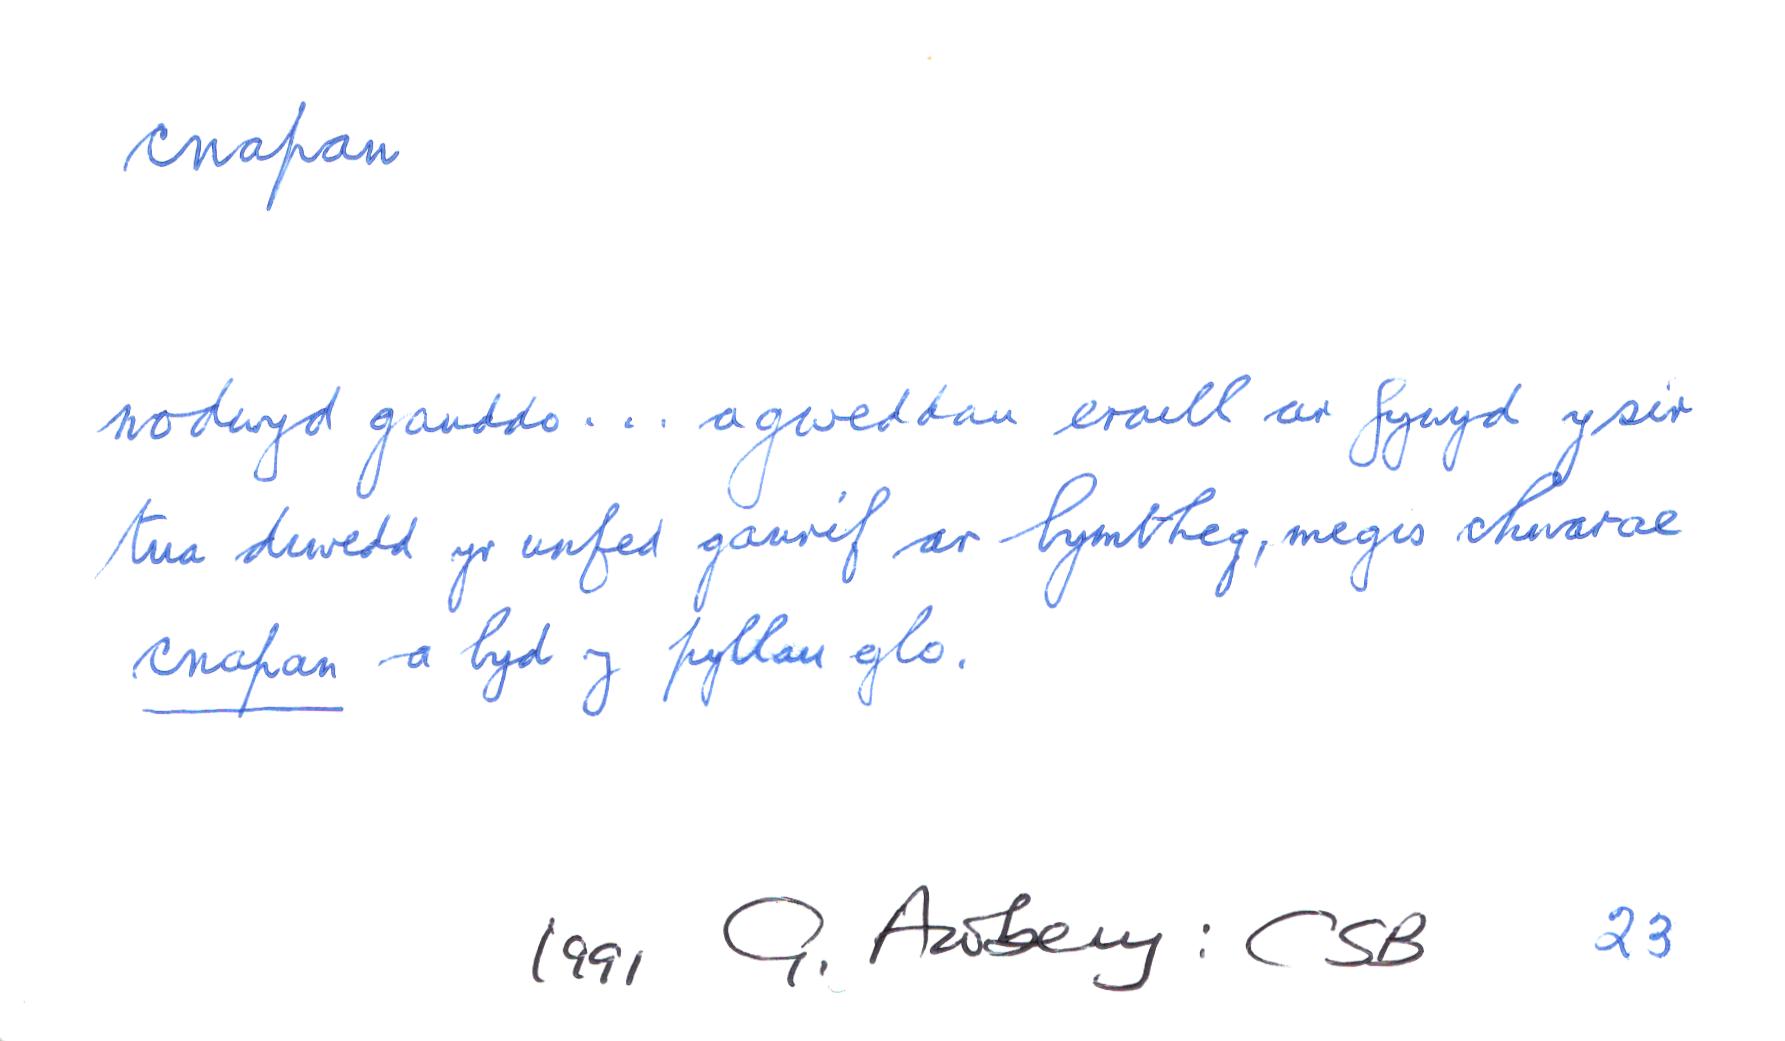 cnapan
nodwyd ganddo... agweddau eraill ar fywyd y sir
tua diwedd yr unfed ganrif ar bymtheg, megis chwarae
cnapan a byd y pyllau glo.
1991 G. Awbery: CSB 23